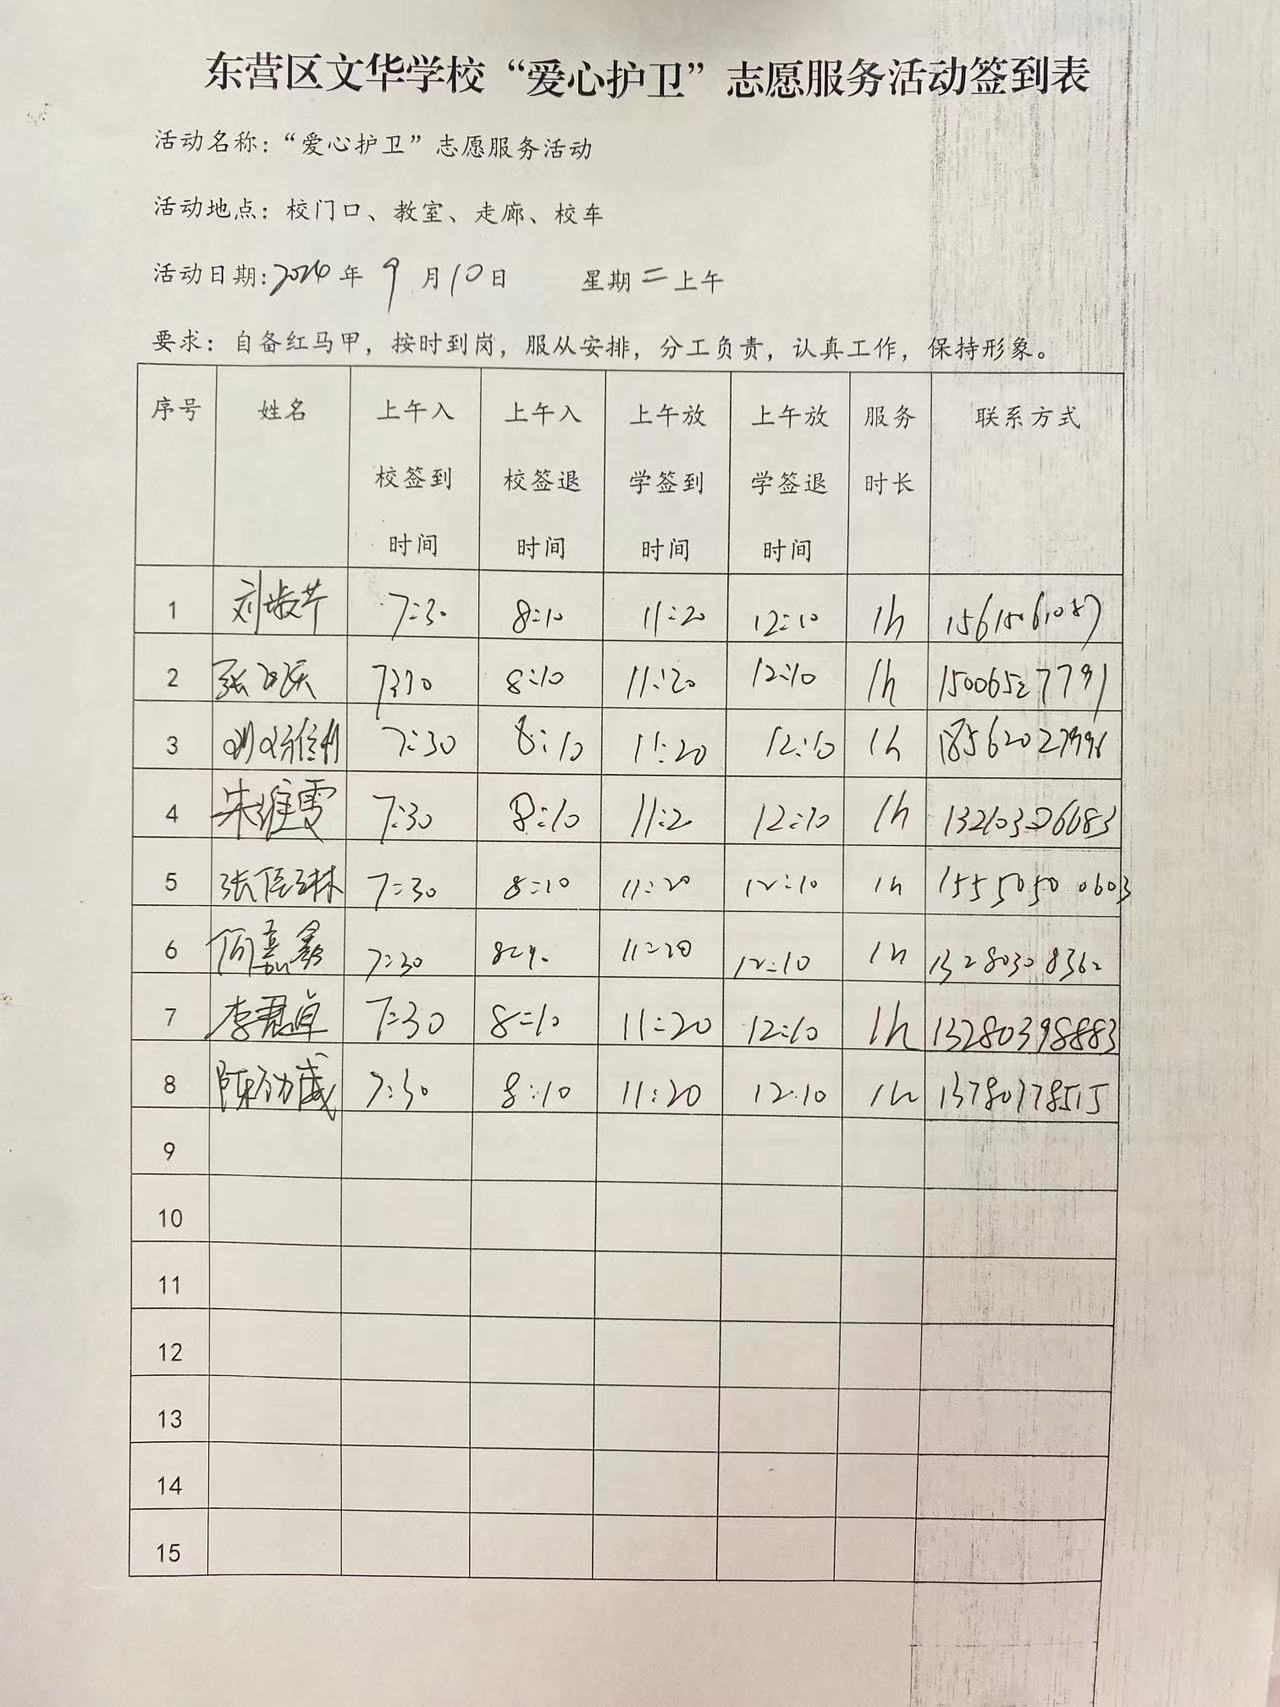 东营区文华学校“爱心护卫”志愿服务活动签到表
活动名称：“爱心护卫”志愿服务活动
活动地点：校门口、教室、走廊、校车
活动日期:2024年 9月10日 星期二上午
要求：自备红马甲，按时到岗，服从安排，分工负责，认真工作，保持形象。
序号 姓名 上午入校签到时间 上午入校签退时间 上午放学签到时间 上午放学签退时间 服务时长 联系方式
1 刘淑芹 7:30 8:10 11:20 12:10 1h 15615061087
2 张 7:30 8:10 11:20 12:10 1h 15006527791
3 7:30 8:10 11:20 12:10 1h
4 朱维雪 7:30 8:10 11:2 12:10 1h 13210326683
5 张 7:30 8:10 11:20 12:10 1h 15550500603
6 何嘉鑫 7:30 11:20 12:10 1h 13280308362
7 李君卓 7:30 8:10 11:20 12:10 1h 13280398883
8 陈 7:30 8:10 11:20 12:10 1h
9
10
11
12
13
14
15